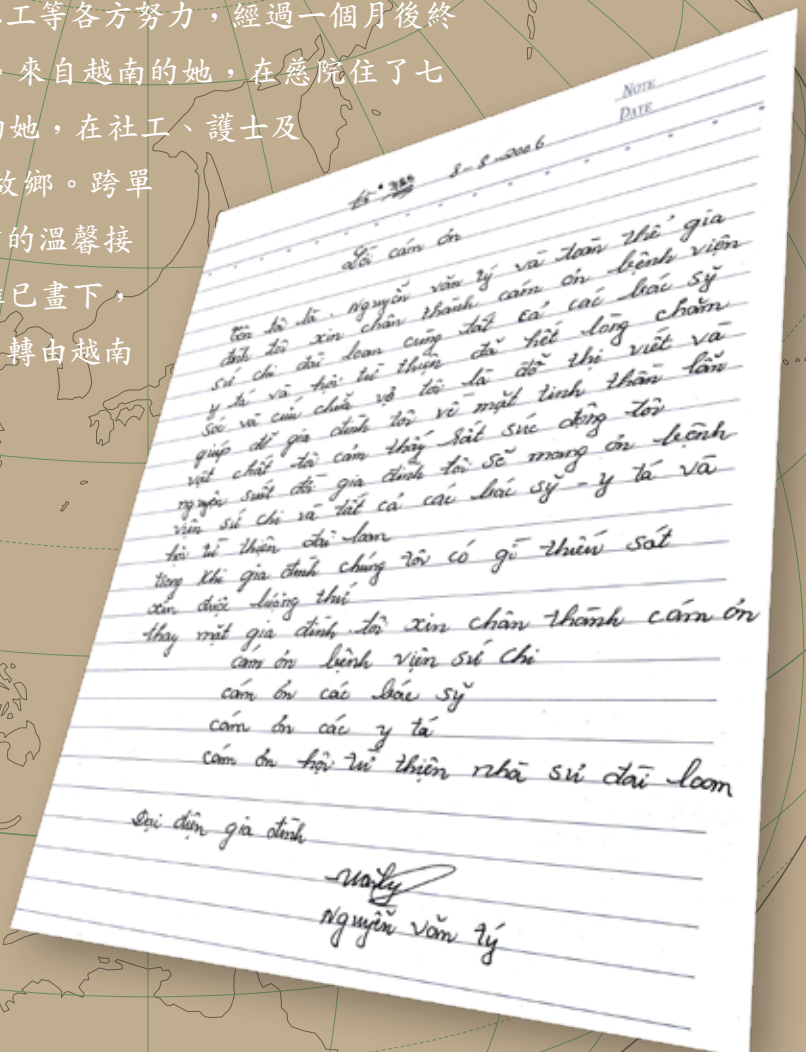 工等各方努力，經過一個月後終
。來自越南的她，在慈院住了七
的她，在社工、護士及
故鄉。跨單
的溫馨接
已畫下，
轉由越南
NOTE
DATE
8-8-2006
Lời cám ơn
tên tôi là. Nguyễn văn tý và toàn thể gia
đình tôi xin chân thành cám ơn bệnh viện
sư chi đài loan cùng tất cả các bác sỹ
y tá và hội từ thiện đã hết lòng chăm
sóc và cứu chữa vợ tôi là đỗ thị viết và
giúp đỡ gia đình tôi về mặt tinh thần lẫn
vật chất tôi cảm thấy rất súc động tôi
nguyện suốt đời gia đình tôi sẽ mang ơn bệnh
viện sư chi và tất cả các bác sỹ - y tá và
hội từ thiện đài loan
trong khi gia đình chúng tôi có gì thiếu sót
xin được lượng thứ
thay mặt gia đình tôi xin chân thành cám ơn
cám ơn bệnh viện sư chi
cám ơn các bác sỹ
cám ơn các y tá
cám ơn hội từ thiện nhà sư đài loan
Đại diện gia đình
Nguyễn văn tý